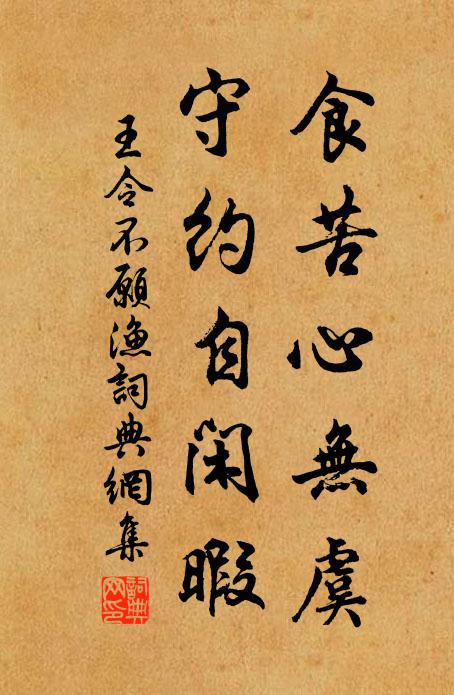 食苦心無虞
守約自閑暇
王令不願漁詞典網集
詞典网印